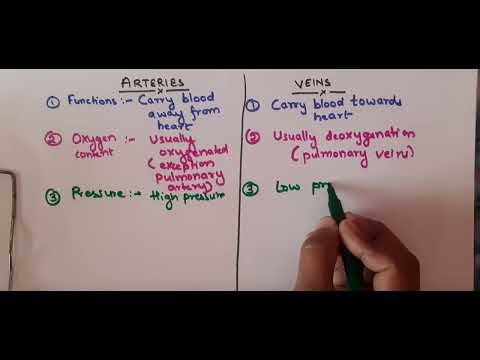 ARTERIES
① Functions :- Carry blood
away from
heart
② Oxygen :- Usually
content oxygenated
(exception
pulmonary
artery)
③ Pressure :- High pressure
VEINS
① Carry blood towards
heart
② Usually deoxygenation
(pulmonary veins)
③ Low pr